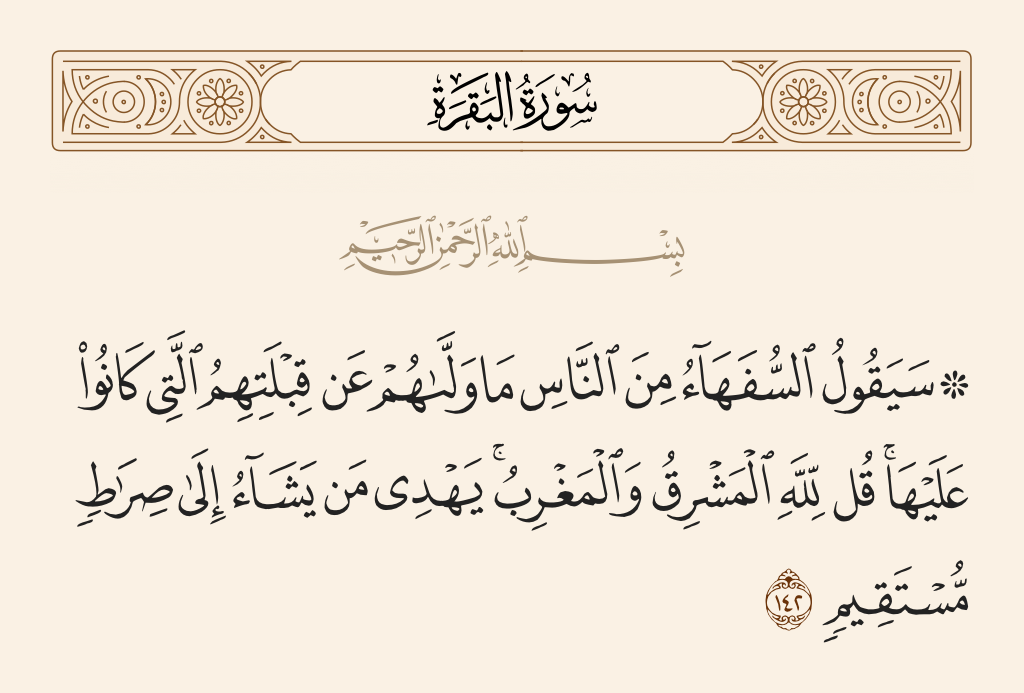 سُورَةُ البَقَرَةِ
بِسْمِ ٱللَّهِ ٱلرَّحْمَٰنِ ٱلرَّحِيمِ
۞ سَيَقُولُ ٱلسُّفَهَآءُ مِنَ ٱلنَّاسِ مَا وَلَّىٰهُمْ عَن قِبْلَتِهِمُ ٱلَّتِى كَانُوا۟
عَلَيْهَا ۚ قُل لِّلَّهِ ٱلْمَشْرِقُ وَٱلْمَغْرِبُ ۚ يَهْدِى مَن يَشَآءُ إِلَىٰ صِرَٰطٍ
مُّسْتَقِيمٍ ١٤٢